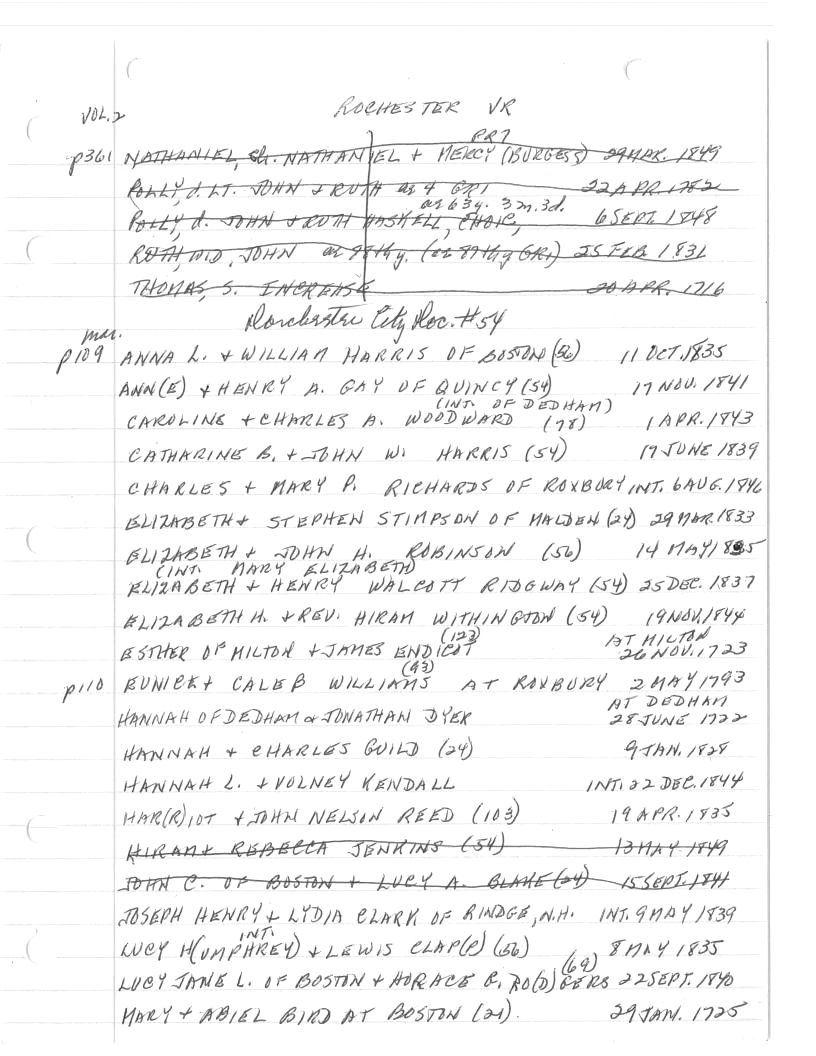 VOL.2 ROCHESTER VR
PR7
p361 NATHANIEL, ch. NATHANIEL + MERCY (BURGESS) 29 MAR. 1849
POLLY, d. LT. JOHN + RUTH ae 4 GR1 22 APR. 1782
ae 63y. 3m. 3d.
POLLY, d. JOHN + RUTH HASKELL, 6 SEPT. 1848
RUTH, WID. JOHN ae 88th y. (ae 87th y GR1) 25 FEB. 1831
THOMAS, S. INCREASE 20 APR. 1716
Dorchester City Doc. #54
mar.
p109 ANNA L. + WILLIAM HARRIS OF BOSTON (56) 11 OCT. 1835
ANN(E) + HENRY A. GAY OF QUINCY (54) 17 NOV. 1841
(INT. OF DEDHAM)
CAROLINE + CHARLES A. WOODWARD (78) 1 APR. 1843
CATHARINE B. + JOHN W. HARRIS (54) 17 JUNE 1839
CHARLES + MARY P. RICHARDS OF ROXBURY INT. 6 AUG. 1846
ELIZABETH + STEPHEN STIMPSON OF MALDEN (24) 29 MAR. 1833
ELIZABETH + JOHN H. ROBINSON (56) 14 MAY 1835
(INT. MARY ELIZABETH)
ELIZABETH + HENRY WALCOTT RIDGWAY (54) 25 DEC. 1837
ELIZABETH H. + REV. HIRAM WITHINGTON (54) 19 NOV. 1844
(123) AT MILTON
ESTHER OF MILTON + JAMES ENDICOT 26 NOV. 1723
(93)
p110 EUNICE + CALEB WILLIAMS AT ROXBURY 2 MAY 1793
AT DEDHAM
HANNAH OF DEDHAM & JONATHAN DYER 28 JUNE 1722
HANNAH + CHARLES GUILD (24) 9 JAN. 1828
HANNAH L. + VOLNEY KENDALL INT. 22 DEC. 1844
HAR(R)IOT + JOHN NELSON REED (103) 19 APR. 1835
HIRAM + REBECCA JENKINS (54) 13 MAY 1849
JOHN C. OF BOSTON + LUCY A. BLAKE (24) 15 SEPT. 1841
JOSEPH HENRY + LYDIA CLARK OF RINDGE, N.H. INT. 9 MAY 1839
INT.
LUCY H(UMPHREY) + LEWIS CLAP(P) (56) 8 MAY 1835
(69)
LUCY JANE L. OF BOSTON + HORACE B. RO(D)GERS 22 SEPT. 1840
MARY + ABIEL BIRD AT BOSTON (21). 29 JAN. 1725